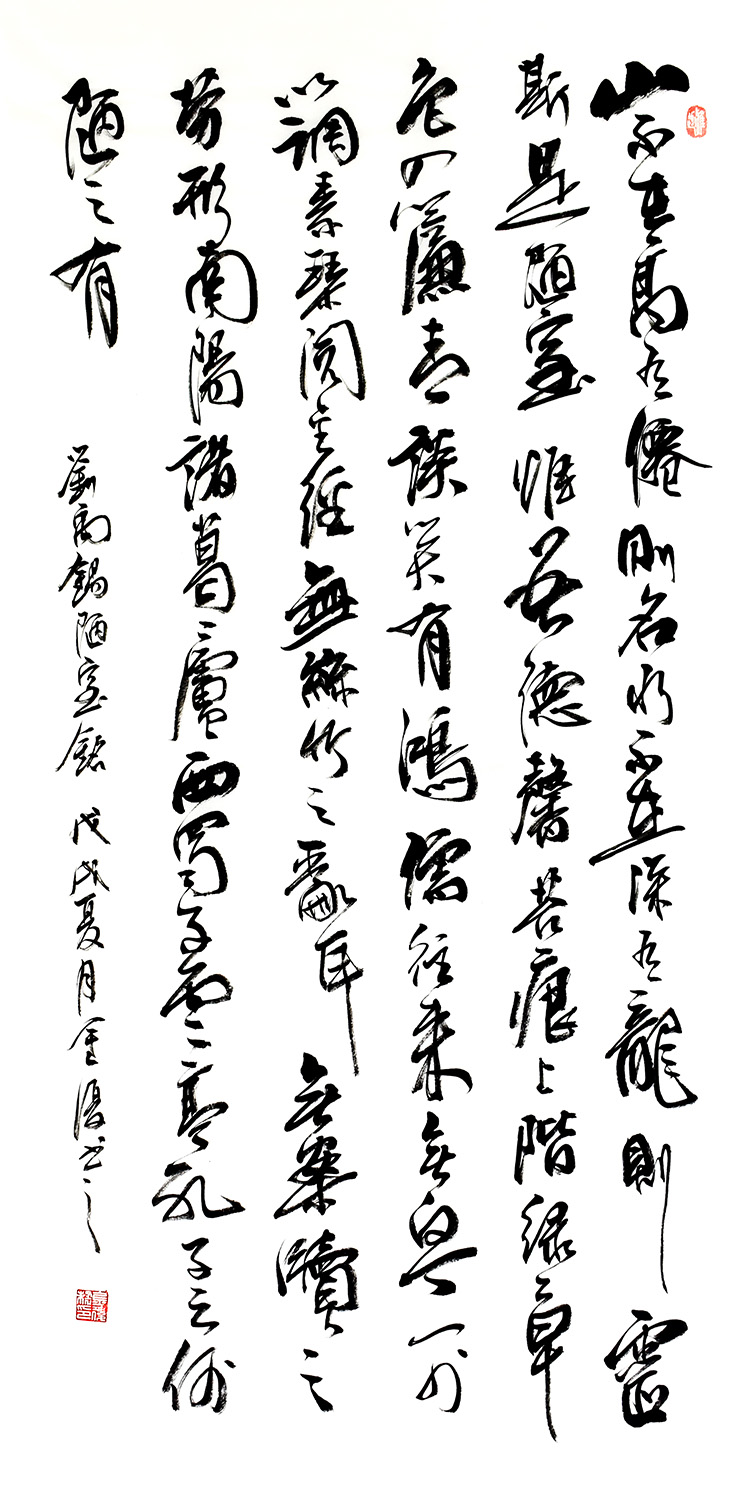 山不在高有僊則名水不在深有龍則靈
斯是陋室惟吾德馨苔痕上階綠草
色入簾青談笑有鴻儒往來無白丁可
以調素琴閱金經無絲竹之亂耳無案牘之
勞形南陽諸葛之廬西蜀子雲之亭孔子云何
陋之有
劉禹錫陋室銘 戊戌夏月 書之